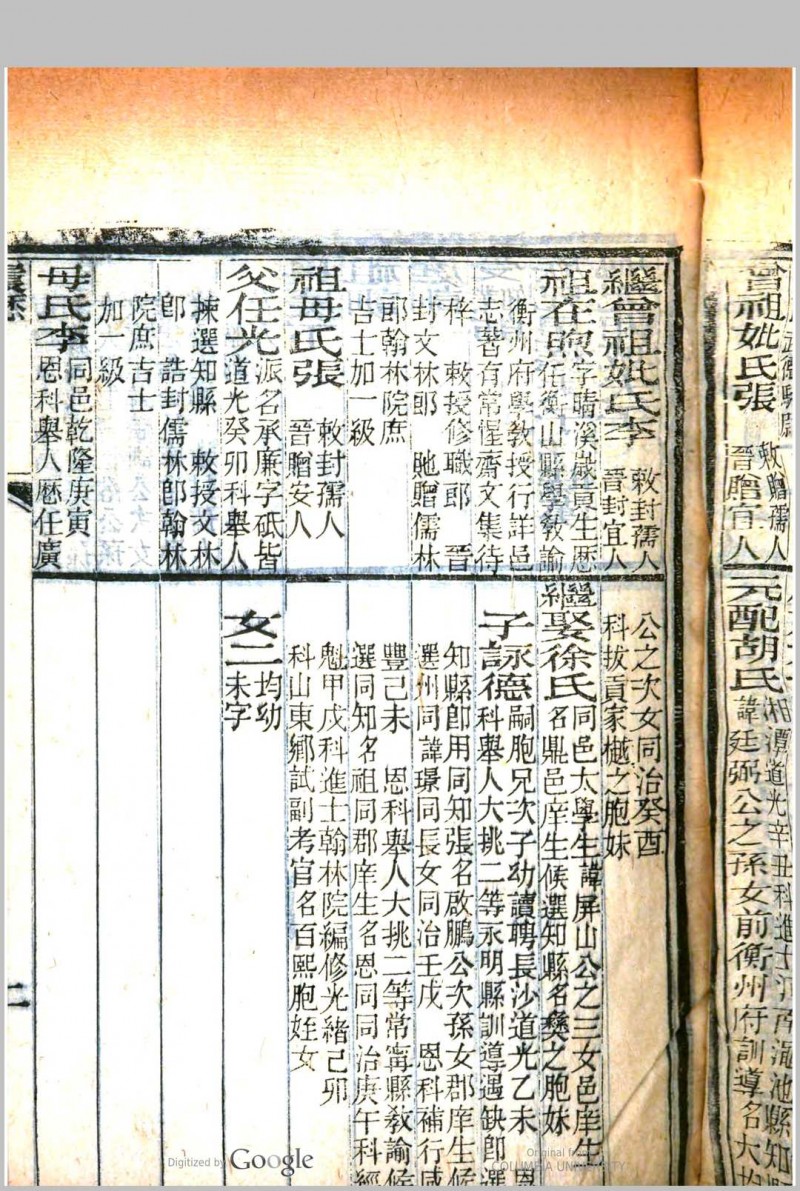 曾祖妣氏張
敕贈孺人
晉贈宜人
元配胡氏
湘潭道光辛丑科進士河南澠池縣知
諱廷弼公之孫女前衡州府訓導名大
繼曾祖妣氏李
敕封孺人
晉封宜人
祖在煦
字晴溪歲貢生歷
任衡山縣學教諭
衡州府學教授行詳邑
志著有常惺齋文集待
梓 敕授修職郎 晉
封文林郎 貤贈儒林
郎翰林院庶
吉士加一級
祖母氏張
敕封孺人
晉贈安人
父任光
派名承廉字砥皆
道光癸卯科舉人
揀選知縣 敕授文林
郎 誥封儒林郎翰林
院庶吉士
加一級
母氏李
同邑乾隆庚寅
恩科舉人歷任廣
公之次女同治癸酉
科拔貢家樾之胞妹
繼娶徐氏
同邑太學生諱屏山公之三女邑庠生
名鼎邑庠生候選知縣名彝之胞妹
子詠德
嗣胞兄次子幼讀聘長沙道光乙未 恩
科舉人大挑二等永明縣訓導遇缺即選
知縣即用同知張名啟鵬公次孫女郡庠生候
選州同諱璟同長女同治壬戌 恩科補行咸
豐己未 恩科舉人大挑二等常甯縣教諭候
選同知名祖同郡庠生名恩同同治庚午科經
魁甲戌科進士翰林院編修光緒己卯
科山東鄉試副考官名百熙胞姪女
女二
均幼
未字
二
Digitized by Google
Original from
COLUMBIA UNIVERSITY